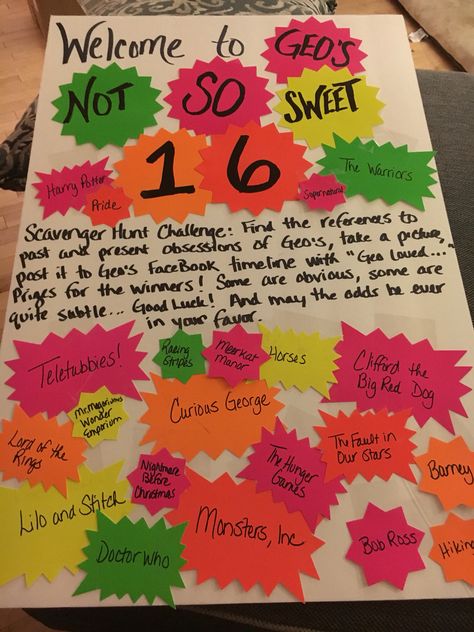 Welcome to GEO's
NOT SO SWEET
16
Harry Potter
Pride
Supernatural
The Warriors
Scavenger Hunt Challenge: Find the references to
past and present obsessions of Geo's, take a picture,
post it to Geo's FaceBook timeline with "Geo loved..."
Prizes for the winners! Some are obvious, some are
quite subtle... Good Luck! And may the odds be ever
in your favor.
Teletubbies!
Racing
Stripes
Meerkat
Manor
Horses
Clifford the
Big Red Dog
Mr. Magoriums
Wonder
Emporium
Curious George
Lord of the
Rings
Nightmare
Before
Christmas
The Hunger
Games
The Fault in
Our Stars
Barney
Lilo and Stitch
Doctor Who
Monsters, Inc
Bob Ross
Hiking